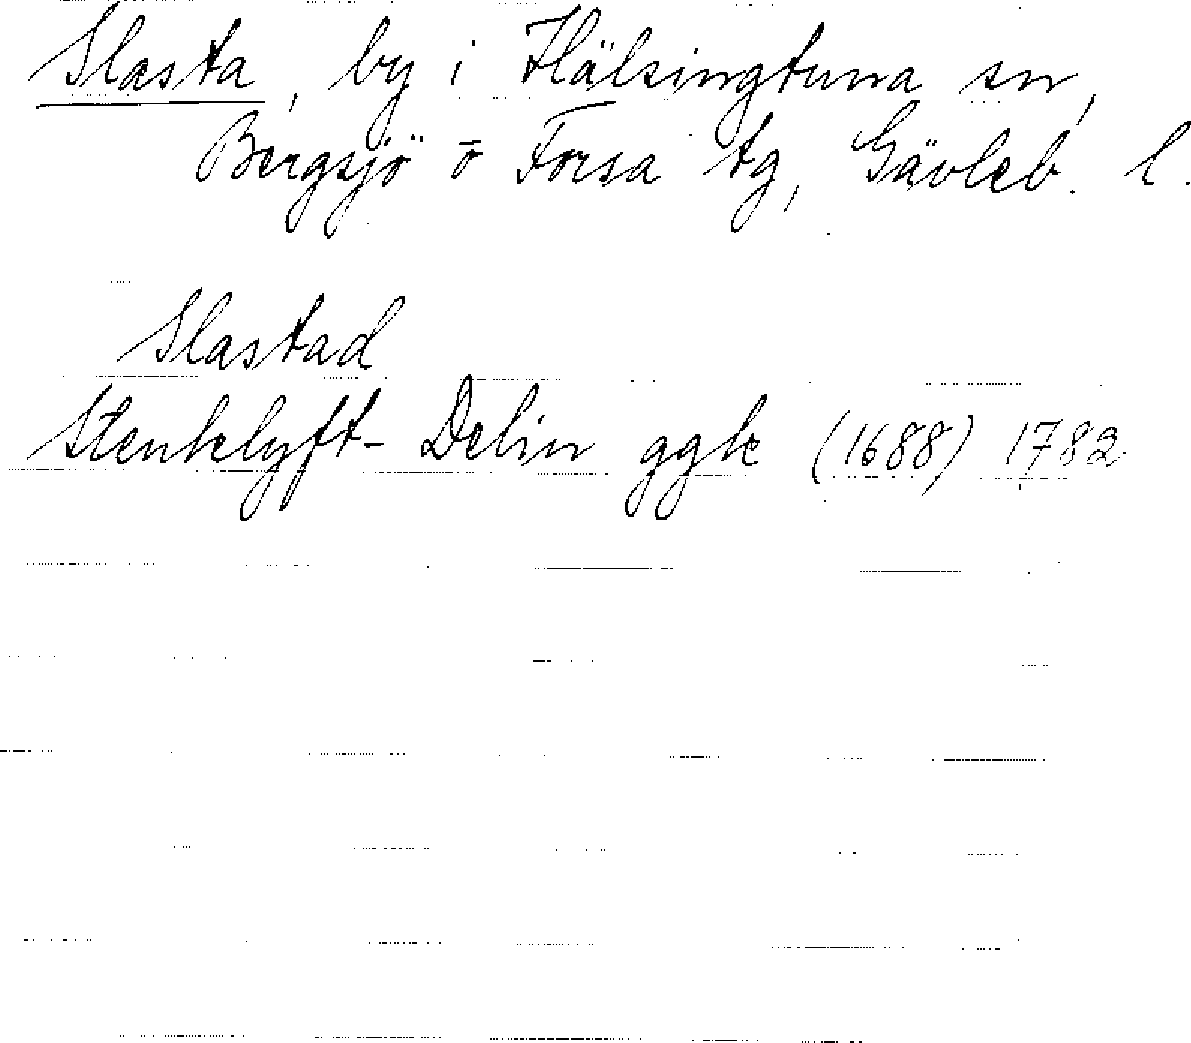 Slasta, by i Hälsingtuna sn,
Bergsjö o Forsa tg, Gävleb. l.
Slastad
Stenklyft- Delin ggk (1688) 1782